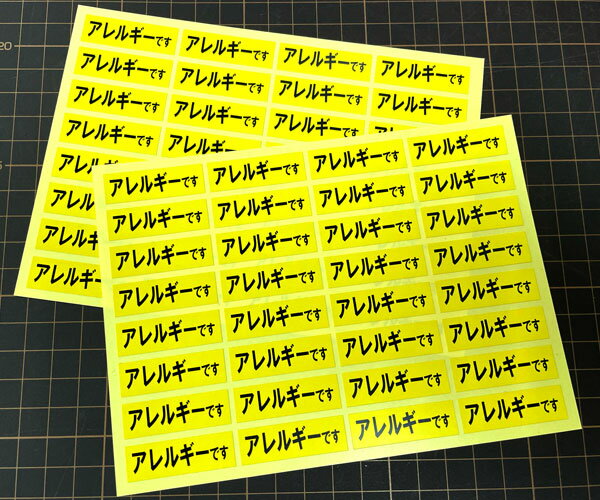 20
アレルギーです アレルギーです アレルギーです アレルギーです
アレルギーです アレルギーです アレルギーです アレルギーです
アレルギーです アレルギーです アレルギーです
アレルギーです アレルギーです
アレルギ
アレルギ
アレルギ
アレルギ
アレルギーです アレルギーです アレルギーです アレルギーです
アレルギーです アレルギーです アレルギーです アレルギーです
アレルギーです アレルギーです アレルギーです アレルギーです
アレルギーです アレルギーです アレルギーです アレルギーです
アレルギーです アレルギーです アレルギーです アレルギーです
アレルギーです アレルギーです アレルギーです アレルギーです
アレルギーです アレルギーです アレルギーです アレルギーです
アレルギーです アレルギーです アレルギーです アレルギーです